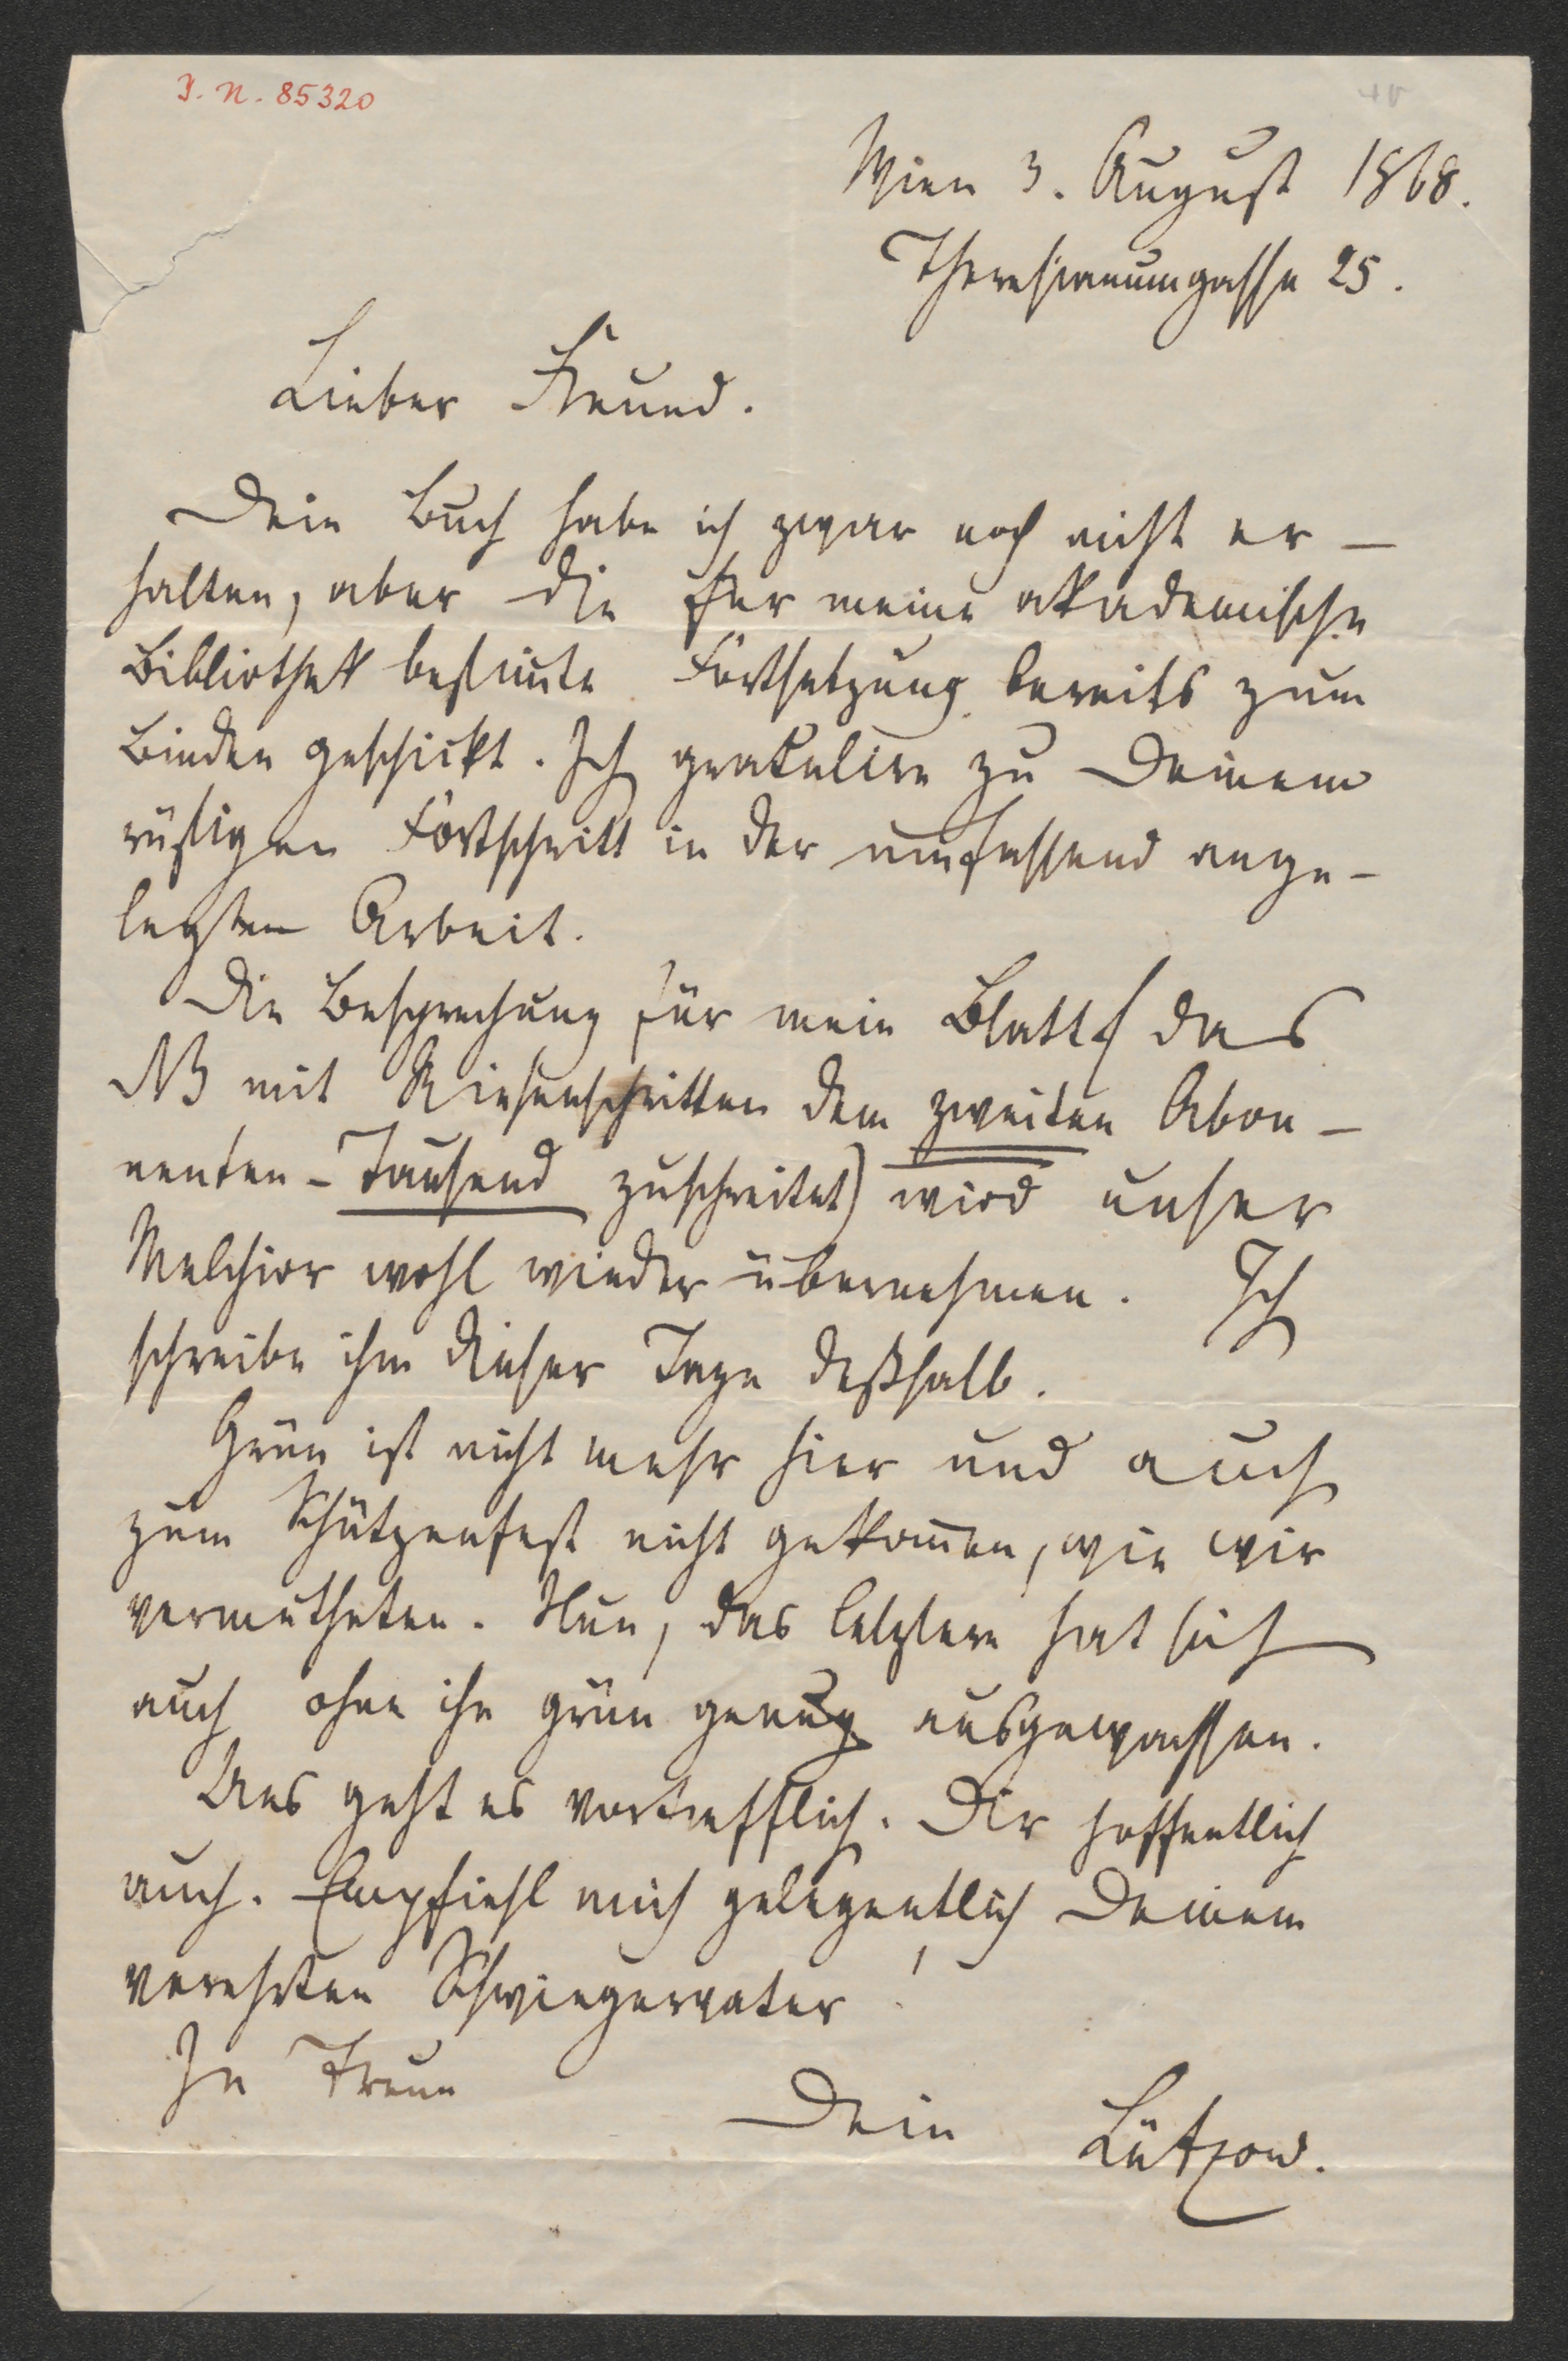 J. N. 85320
Wien 3. August 1868.
Theresianumgasse 25.
Lieber Freund.
Dein Buch habe ich zwar noch nicht er–
halten, aber die für meine akademische
Bibliothek bestim̄te Fortsetzung bereits zum
Binden geschickt. Ich gratulire zu Deinem
rüstigen Fortschritt in der umfassend ange–
legten Arbeit.
Die Besprechung für mein Blatt (das
NB mit Riesenschritten dem zweiten Abon–
nenten-Tausend zuschreitet) wird unser
Melchior wohl wieder übernehmen. Ich
schreibe ihm dieser Tage deßhalb.
Grün ist nicht mehr hier und auch
zum Schützenfest nicht gekom̄en, wie wir
vermutheten. Nun, das letztere hat sich
auch ohne ihn grün genug ausgewachsen.
Uns geht es vortrefflich. Dir hoffentlich
auch. Empfiehl mich gelegentlich Deinem
verehrten Schwiegervater!
In Treue
Dein Lützow.